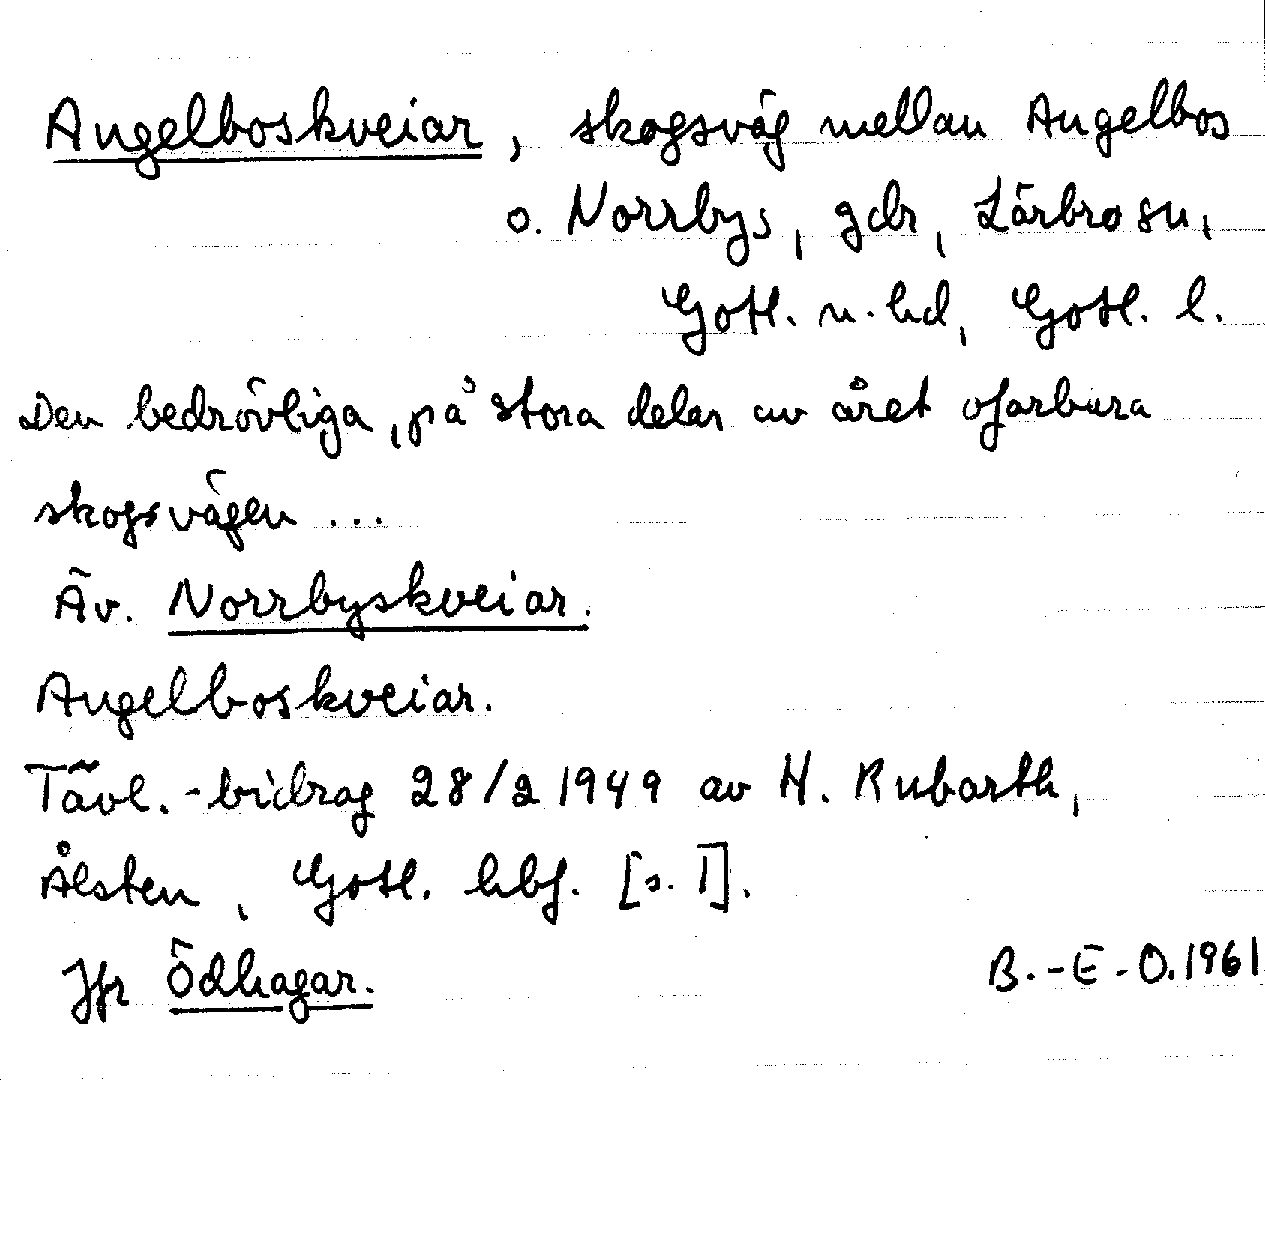 Angelboskveiar, skogsväg mellan Angelbos
o. Norrbys, gdr, Lärbro sn,
Gotl. n. hd, Gotl. l.
Den bedrövliga, på stora delar av året ofarbara
skogsvägen ...
Äv. Norrbyskveiar.
Angelboskveiar.
Tävl.-bidrag 28/2 1949 av H. Rubarth,
Ålsten, Gotl. hbf. [s. 1].
Jfr Ödhagar.
B.-E-O. 1961